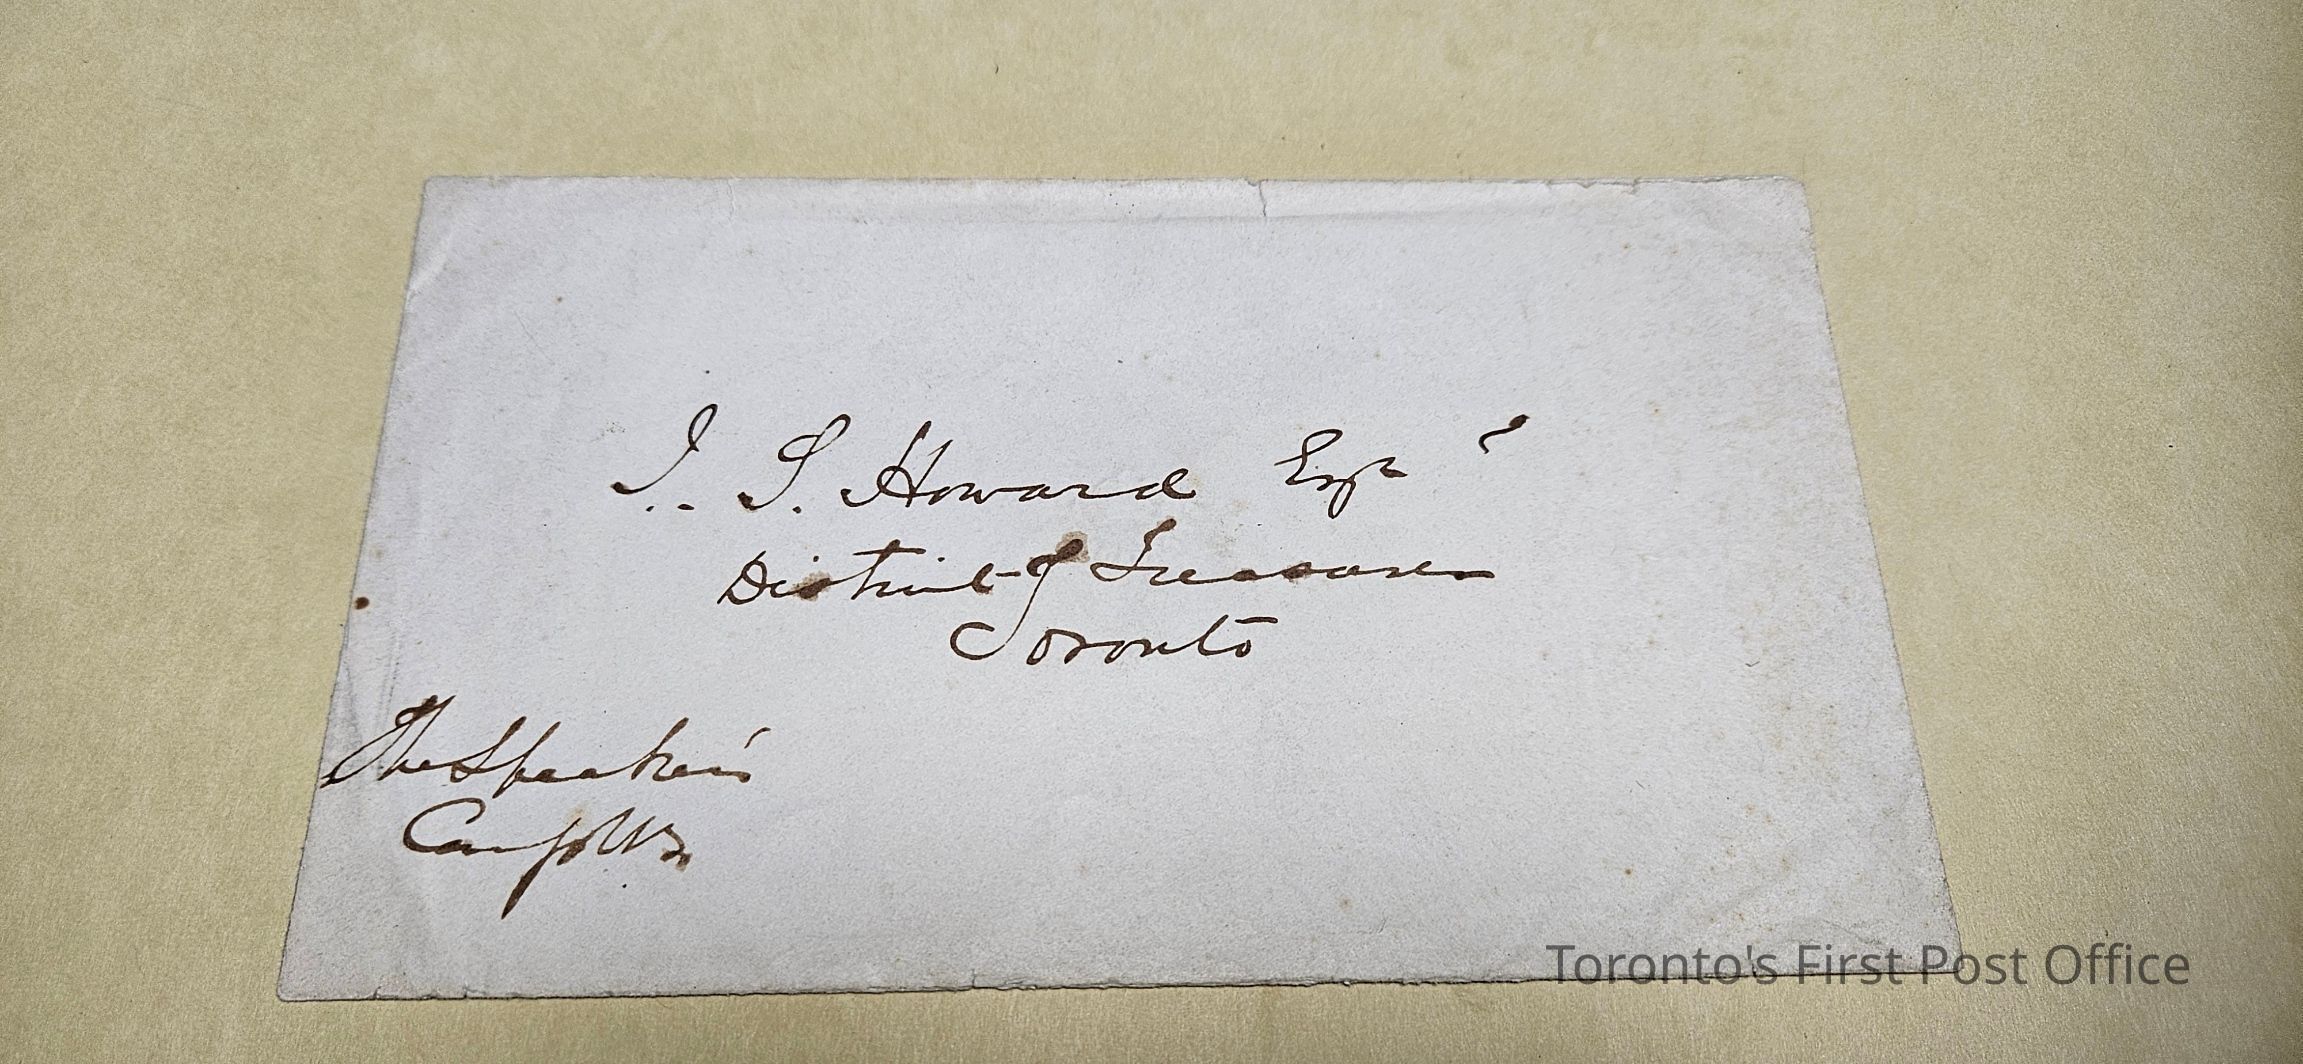 J. S. Howard Esqr
District Treasurer
Toronto
The Speaker's
Toronto's First Post Office